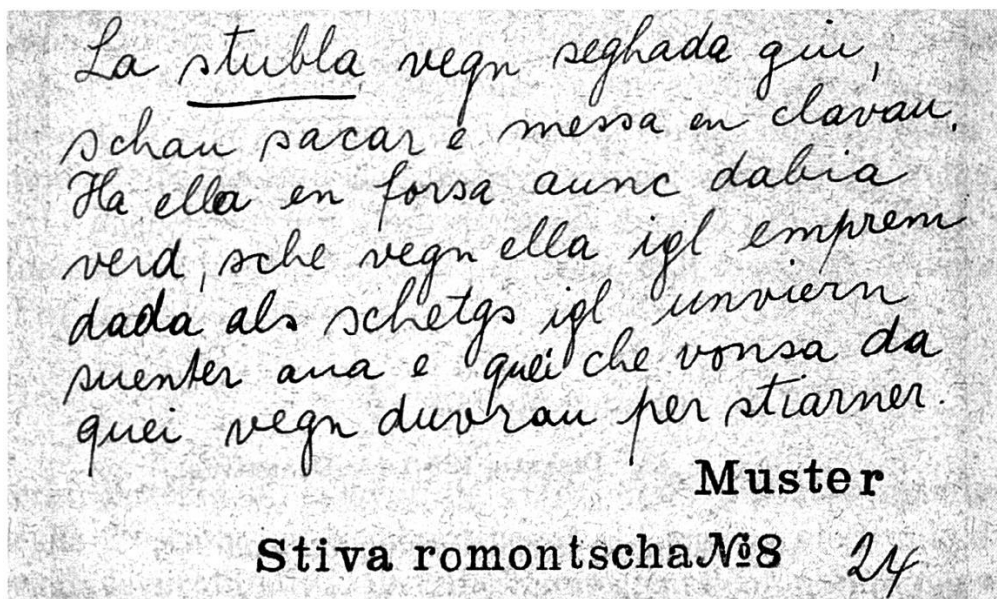 La stubla vegn seghada giu,
schau sacar e messa en clavau.
Ha ella en forsa aunc dabia
verd, sche vegn ella igl emprem
dada als schetgs igl unviern
suenter aua e quei che vonsa da
quei vegn duvrau per stiarner.
Muster
Stiva romontscha № 8 24